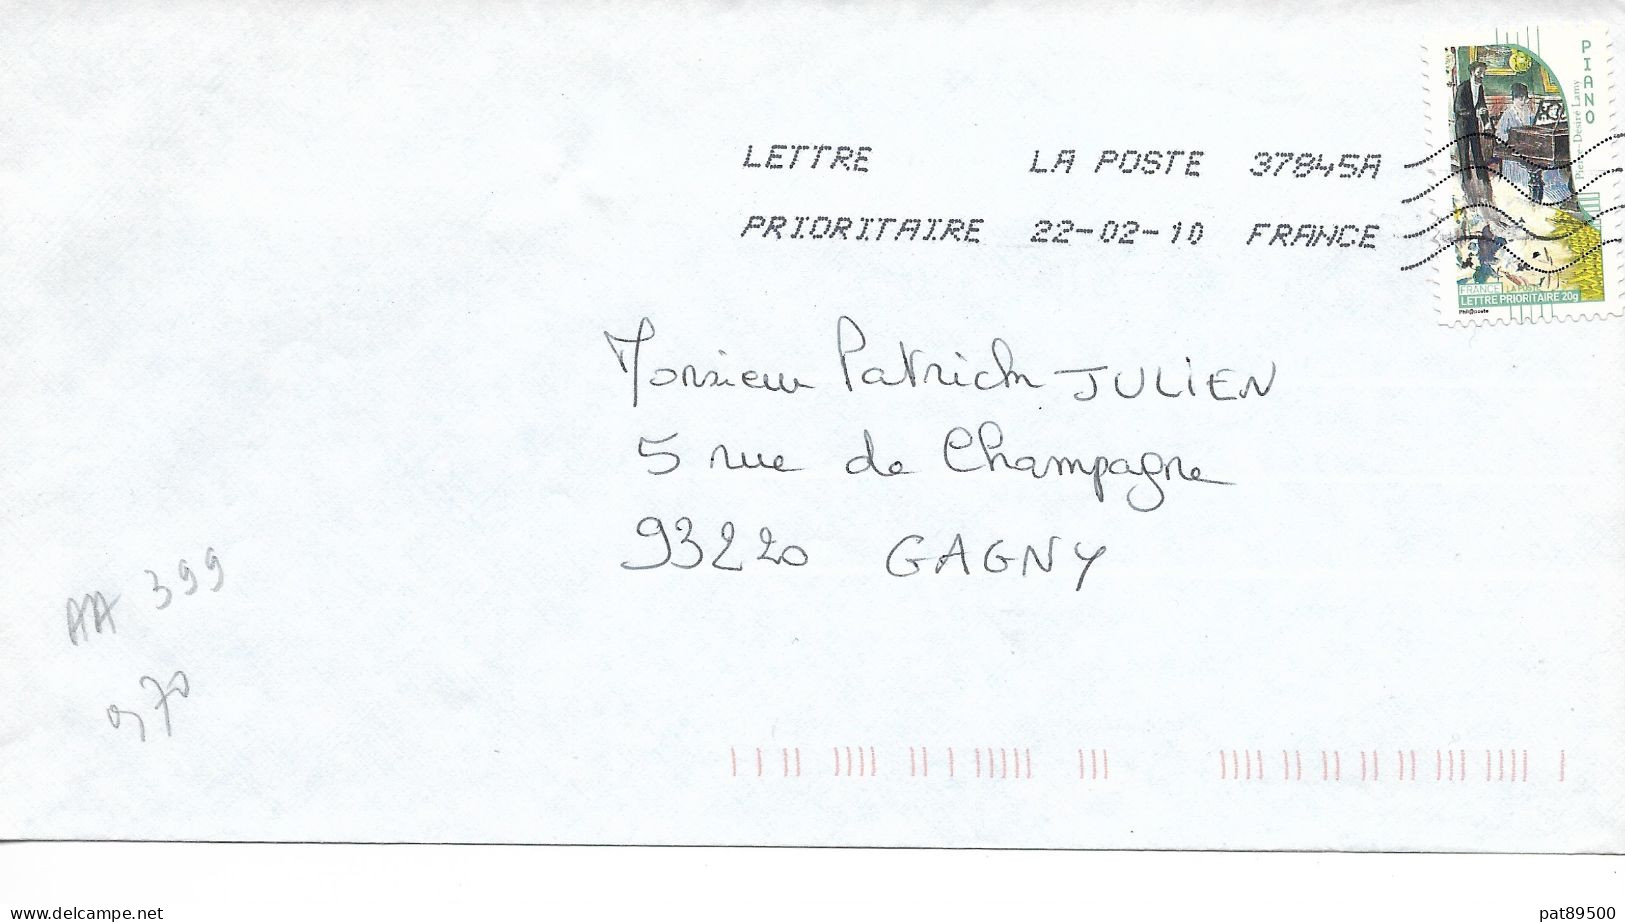 PIANO
Pierre-Desiré Lamy
LETTRE LA POSTE 37845A
PRIORITAIRE 22-02-10 FRANCE
FRANCE LA POSTE
LETTRE PRIORITAIRE 20g
Phil@poste
Monsieur Patrick JULIEN
5 rue de Champagne
93220 GAGNY
AA 399
970
www.delcampe.net
pat89500